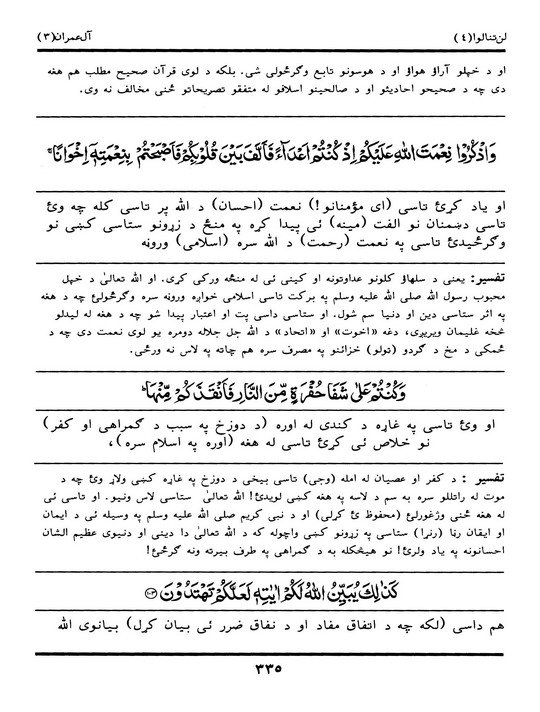 لن تنالوا(٤) آل عمران(٣)
او د خپلو آراؤ هواؤ او د هوسونو تابع وگرځولی شی. بلکه د لوی قرآن صحیح مطلب هم هغه
دی چه د صحیحو احادیثو او د صالحینو اسلافو له متفقو تصریحاتو څنی مخالف نه وی.
وَاذْكُرُوْا نِعْمَتَ اللهِ عَلَيْكُمْ اِذْ كُنْتُمْ اَعْدَآءً فَاَلَّفَ بَيْنَ قُلُوْبِكُمْ فَاَصْبَحْتُمْ بِنِعْمَتِهٖٓ اِخْوَانًا ۚ
او یاد کړئ تاسی (ای مؤمنانو!) نعمت (احسان) د الله پر تاسی کله چه وئ
تاسی دښمنان نو الفت (مینه) ئی پیدا کړه په منځ د زړونو ستاسی کښی نو
وگرځیدئ تاسی په نعمت (رحمت) د الله سره (اسلامی) ورونه
تفسیر: یعنی د سلهاؤ کلونو عداوتونه او کینی ئی له منځه ورکی کړی. او الله تعالیٰ د خپل
محبوب رسول الله صلی الله علیه وسلم په برکت تاسی اسلامی خواږه ورونه سره وگرځولئ چه د هغه
په اثر ستاسی دین او دنیا سم شول. او ستاسی داسی پت او اعتبار پیدا شو چه د هغه له لیدلو
څخه غلیمان ویریږی، دغه «اخوت» او «اتحاد» د الله جل جلاله دومره یو لوی نعمت دی چه د
ځمکی د مخ د گردو (ټولو) خزائنو په مصرف سره هم چاته په لاس نه ورځی.
وَكُنْتُمْ عَلٰى شَفَا حُفْرَةٍ مِّنَ النَّارِ فَاَنْقَذَكُمْ مِّنْهَا ؕ
او وئ تاسی په غاړه د کندی له اوره (د دوزخ په سبب د گمراهی او کفر)
نو خلاص ئی کړئ تاسی له هغه (اوره په اسلام سره)،
تفسیر : د کفر او عصیان له امله (وجی) تاسی بیخی د دوزخ په غاړه کښی ولاړ وئ چه د
موت له راتللو سره به سم د لاسه په هغه کښی لویدئ! الله تعالیٰ ستاسی لاس ونیو. او تاسی ئی له
له هغه څنی وژغورلئ (محفوظ ئی کړلی) او د نبی کریم صلی الله علیه وسلم په وسیله ئی د ایمان
او ایقان رنا (رنړا) ستاسی په زړونو کښی واچوله که د الله تعالیٰ دا دینی او دنیوی عظیم الشان
احسانونه په یاد ولرئ! نو هیڅکله به د گمراهی په طرف بیرته ونه گرځئ!
كَذٰلِكَ يُبَيِّنُ اللهُ لَكُمْ اٰيٰتِهٖ لَعَلَّكُمْ تَهْتَدُوْنَ ﴿١٠٣﴾
هم داسی (لکه چه د اتفاق مفاد او د نفاق ضرر ئی بیان کړل) بیانوی الله
٣٣٥